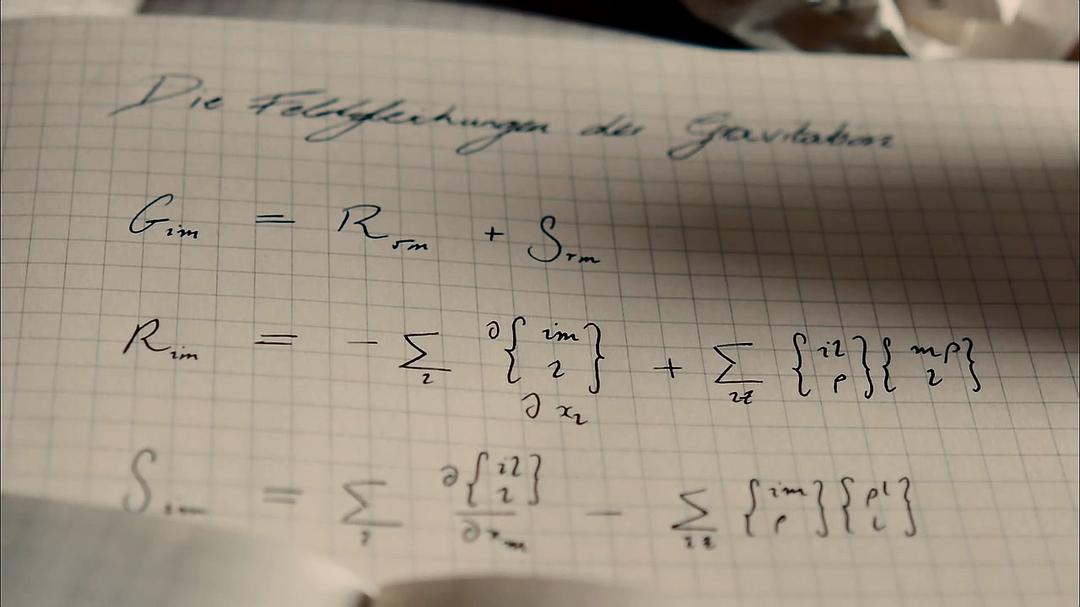 Die Feldgleichungen der Gravitation
G_im = R_im + S_im
R_im = - ∑_l ∂{im l} / ∂x_l + ∑ {il ρ}{mρ l}
S_im = ∑_l ∂{il l} / ∂x_m - ∑ {im ρ}{ρl l}